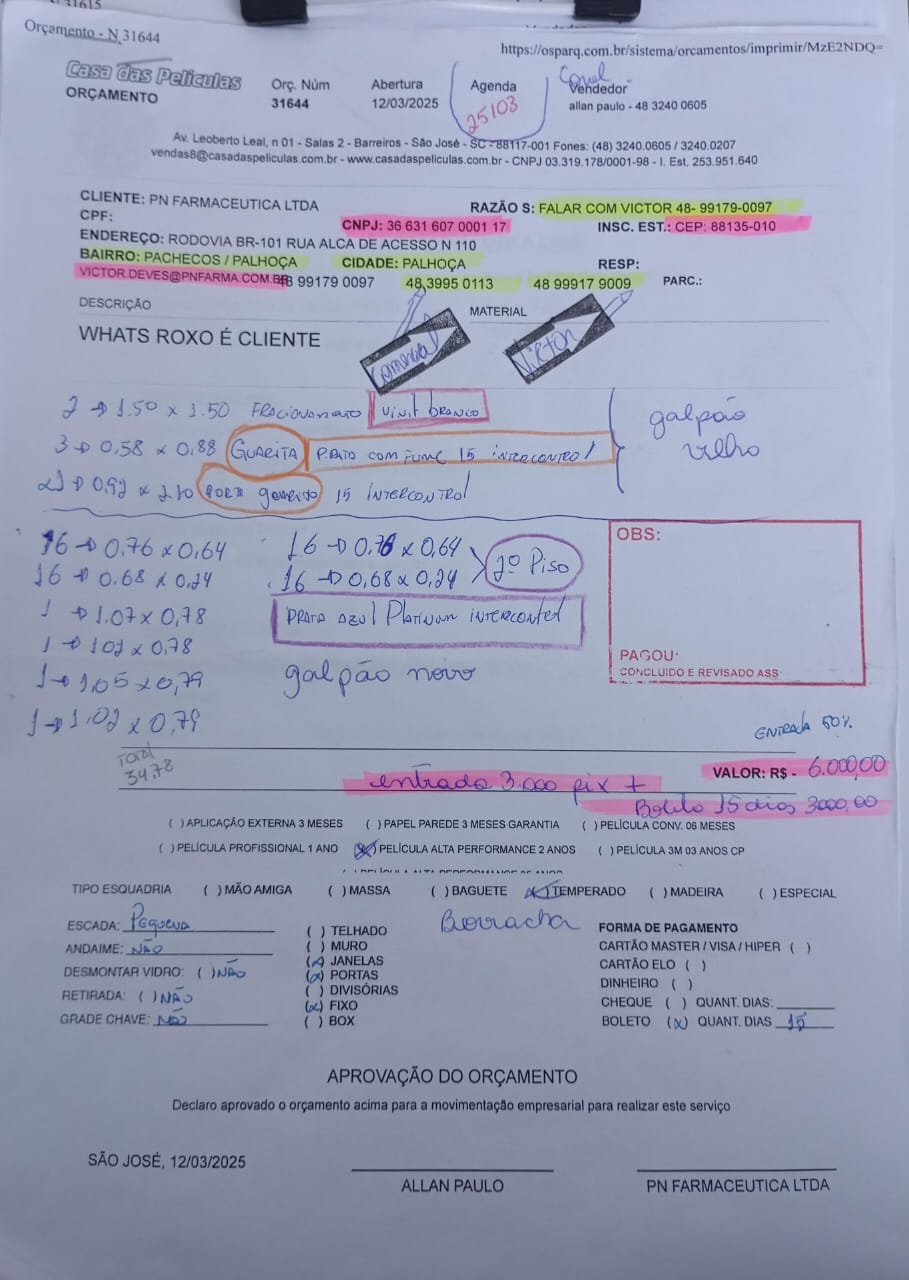 31615
Orçamento - N 31644
https://osparq.com.br/sistema/orcamentos/imprimir/MzE2NDQ=
Casa das Películas
ORÇAMENTO
Orç. Núm
31644
Abertura
12/03/2025
Agenda
25/03
Vendedor
allan paulo - 48 3240 0605
Av. Leoberto Leal, n 01 - Salas 2 - Barreiros - São José - SC - 88117-001 Fones: (48) 3240.0605 / 3240.0207
vendas8@casadaspeliculas.com.br - www.casadaspeliculas.com.br - CNPJ 03.319.178/0001-98 - I. Est. 253.951.640
CLIENTE: PN FARMACEUTICA LTDA
RAZÃO S: FALAR COM VICTOR 48- 99179-0097
CPF:
CNPJ: 36 631 607 0001 17
INSC. EST.: CEP: 88135-010
ENDEREÇO: RODOVIA BR-101 RUA ALCA DE ACESSO N 110
BAIRRO: PACHECOS / PALHOÇA
CIDADE: PALHOÇA
RESP:
VICTOR.DEVES@PNFARMA.COM.BR
48 99179 0097
48 3995 0113
48 99917 9009
PARC.:
DESCRIÇÃO
MATERIAL
WHATS ROXO É CLIENTE
Comercial
Victor
2 → 1.50 x 1.50 FRACIONAMENTO VINIL BRANCO
3 → 0,58 x 0,88 GUARITA PRATA COM FUME 15 INTERCONTROL
0,92 x 2.10 PORTA guarita 15 INTERCONTROL
galpão
velho
16 → 0,76 x 0,64
16 → 0,76 x 0,64
16 → 0.68 x 0,24
16 → 0,68 x 0,24
2º Piso
1 → 1.07 x 0,78
PRATA AZUL Platinum intercontrol
1 → 1.02 x 0.78
1 → 1,05 x 0,79
galpão novo
1 → 1.02 x 0,79
OBS:
PAGOU:
CONCLUIDO E REVISADO ASS:
ENTRADA 50%
Total
34.78
VALOR: R$ - 6.000,00
entrada 3.000 pix +
Boleto 15 dias 3000,00
( ) APLICAÇÃO EXTERNA 3 MESES ( ) PAPEL PAREDE 3 MESES GARANTIA ( ) PELÍCULA CONV. 06 MESES
( ) PELÍCULA PROFISSIONAL 1 ANO (X) PELÍCULA ALTA PERFORMANCE 2 ANOS ( ) PELÍCULA 3M 03 ANOS CP
TIPO ESQUADRIA ( ) MÃO AMIGA ( ) MASSA ( ) BAGUETE (X) TEMPERADO ( ) MADEIRA ( ) ESPECIAL
Borracha
ESCADA: Pequena
ANDAIME: NÃO
DESMONTAR VIDRO: ( ) NÃO
RETIRADA: ( ) NÃO
GRADE CHAVE: NÃO
( ) TELHADO
( ) MURO
(x) JANELAS
(x) PORTAS
( ) DIVISÓRIAS
(x) FIXO
( ) BOX
FORMA DE PAGAMENTO
CARTÃO MASTER / VISA / HIPER ( )
CARTÃO ELO ( )
DINHEIRO ( )
CHEQUE ( ) QUANT. DIAS:
BOLETO (x) QUANT. DIAS 15
APROVAÇÃO DO ORÇAMENTO
Declaro aprovado o orçamento acima para a movimentação empresarial para realizar este serviço
SÃO JOSÉ, 12/03/2025
ALLAN PAULO
PN FARMACEUTICA LTDA